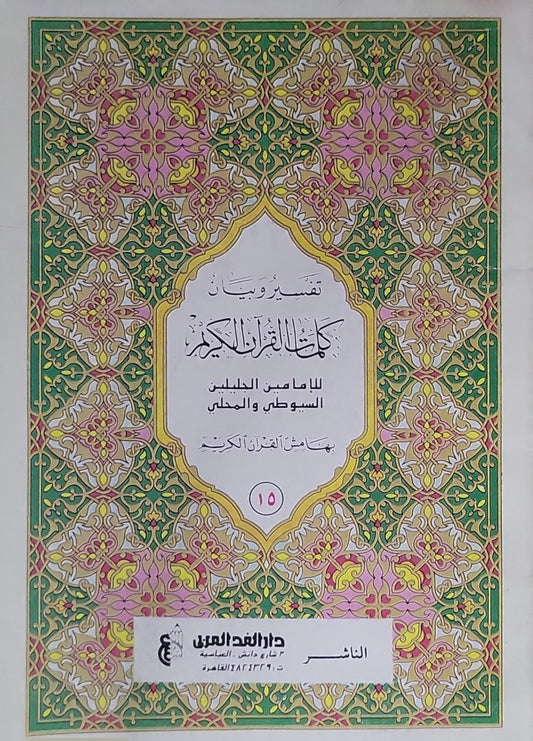 تفسير وبيان
كلمات القرآن الكريم
للإمامين الجليلين
السيوطي والمحلي
بهامش القرآن الكريم
١٥
الناشر
دار الغد العربى
٣ شارع دانش - العباسية
ت: ٤٨٢٤٣٢٩ القاهرة